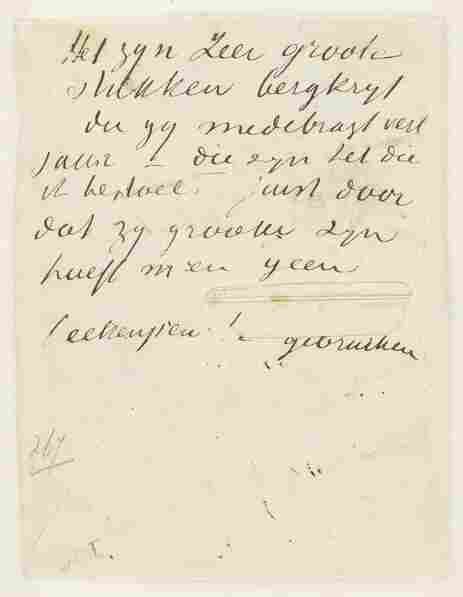 Het zyn Zeer groote
stukken bergkryt
die gy medebragt verl
jaar – die zyn het die
ik bedoel. juist door
dat zy grooter zyn
hoeft men geen
teekenpen !
gebruiken
267